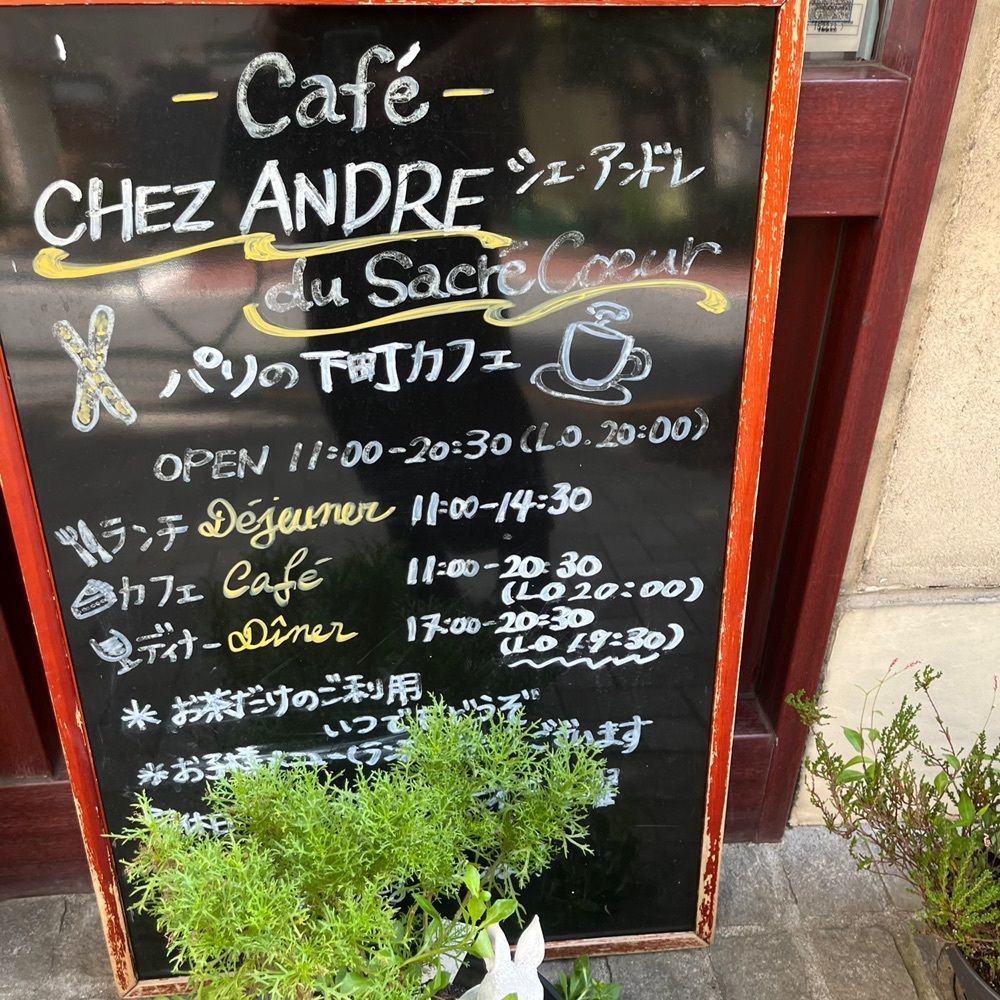 - Café -
CHEZ ANDRE シェ・アンドレ
du Sacré Coeur
パリの下町カフェ
OPEN 11:00-20:30 (L.O. 20:00)
ランチ Déjeuner 11:00-14:30
カフェ Café 11:00-20:30
(L.O 20:00)
ディナー Dîner 17:00-20:30
(L.O 19:30)
* お茶だけのご利用
いつでもどうぞ
* お子様 ございます